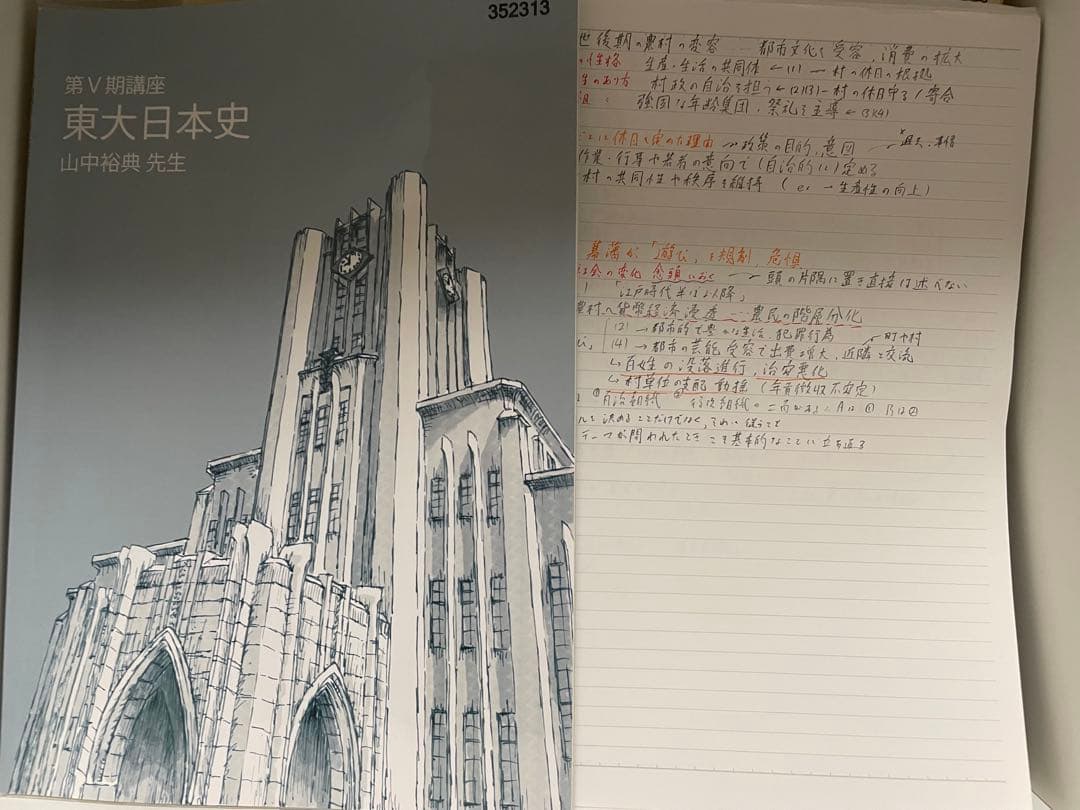 352313
第Ⅴ期講座
東大日本史
山中裕典 先生
世後期の農村の変容 … 都市文化を受容、消費の拡大
の性格 生産・生活の共同体 ←(1) ー村の休日の根拠
生のあり方 村政の自治を担う ←(2)(3)ー村の休日守る/寄合
組: 強固な年齢集団、祭礼を主導 ←(3)(4)
に休日を定めた理由 → 政策の目的、意図
作業・行事や若者の意向で(自治的に)定める
村の共同性や秩序を維持 (ex →生産性の向上)
幕藩が「遊び」を規制、危惧
社会の変化 念頭におく → 頭の片隅に置き直接は述べない
「江戸時代半ば以降」
農村へ貨幣経済浸透 … 農民の階層分化
(2) →都市的で豊かな生活、犯罪行為 町や村
(4) →都市の芸能受容で出費増大、近隣と交流
↳百姓の没落進行、治安悪化
↳村単位の支配動揺 (年貢徴収不安定)
①自治組織 ②
決めることだけでなく、それに従うこと
テーマが問われたときこそ基本的なことに立ち返る